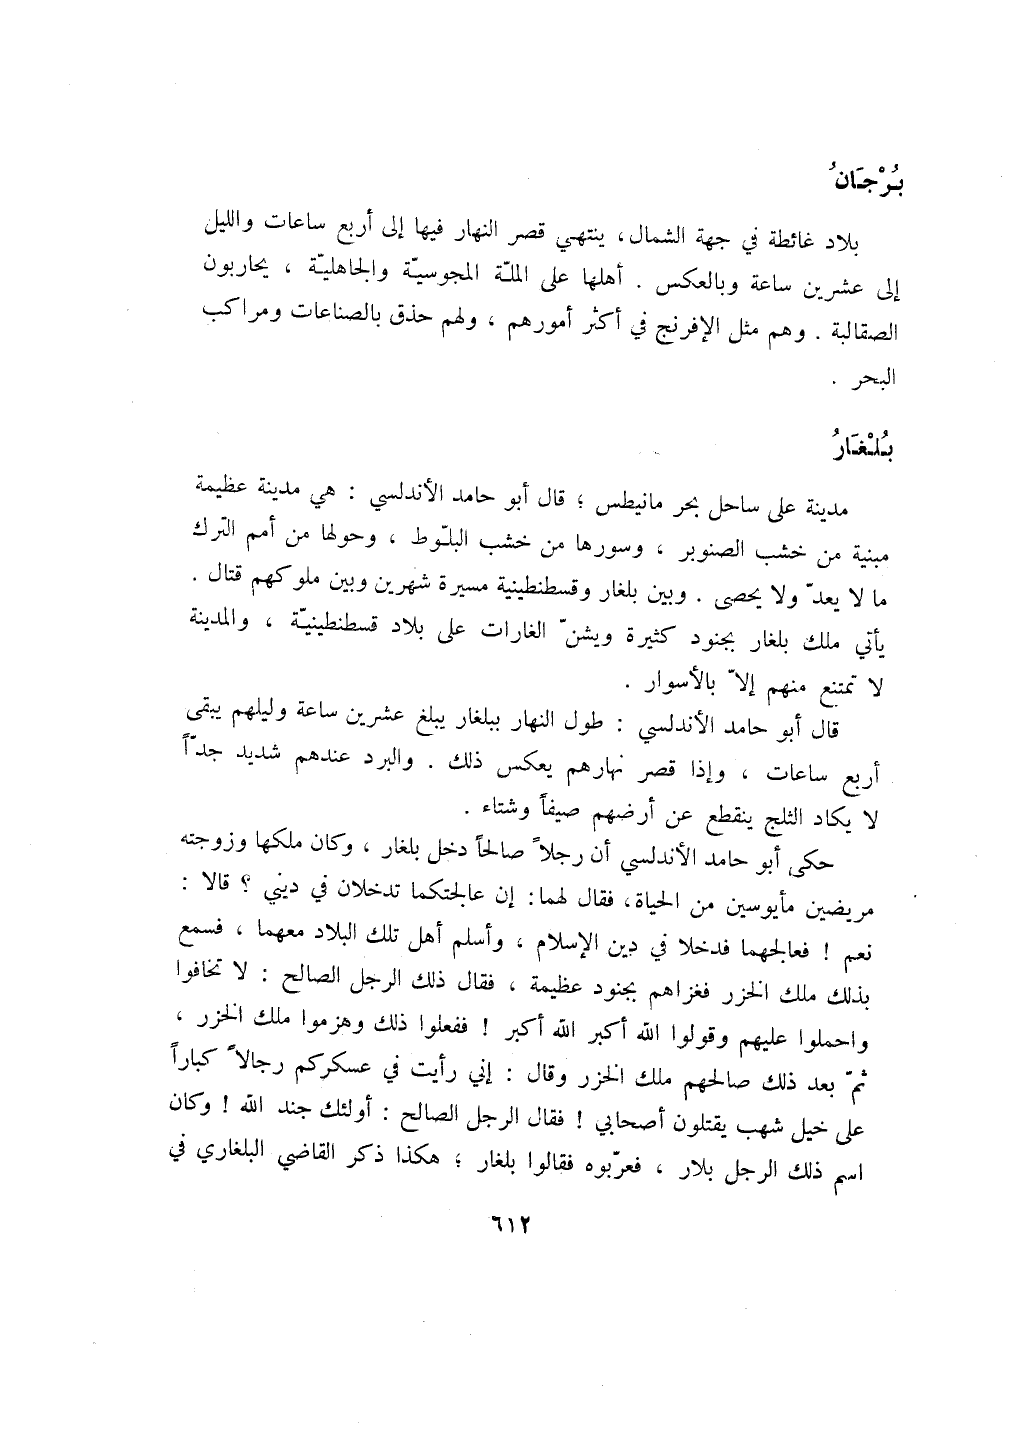 بُرْجَانُ
بلاد غائطة في جهة الشمال، ينتهي قصر النهار فيها إلى أربع ساعات والليل
إلى عشرين ساعة وبالعكس . أهلها على الملّة المجوسيّة والجاهليّة ، يحاربون
الصقالبة . وهم مثل الإفرنج في أكثر أمورهم ، ولهم حذق بالصناعات ومراكب
البحر .
بُلْغَارُ
مدينة على ساحل بحر مانيطس ؛ قال أبو حامد الأندلسي : هي مدينة عظيمة
مبنية من خشب الصنوبر ، وسورها من خشب البلّوط ، وحولها من أمم الترك
ما لا يعدّ ولا يحصى . وبين بلغار وقسطنطينية مسيرة شهرين وبين ملوكهم قتال .
يأتي ملك بلغار بجنود كثيرة ويشنّ الغارات على بلاد قسطنطينيّة ، والمدينة
لا تمتنع منهم إلاّ بالأسوار .
قال أبو حامد الأندلسي : طول النهار ببلغار يبلغ عشرين ساعة وليلهم يبقى
أربع ساعات ، وإذا قصر نهارهم يعكس ذلك . والبرد عندهم شديد جدّاً
لا يكاد الثلج ينقطع عن أرضهم صيفاً وشتاء .
حكى أبو حامد الأندلسي أن رجلاً صالحاً دخل بلغار ، وكان ملكها وزوجته
مريضين مأيوسين من الحياة، فقال لهما: إن عالجتكما تدخلان في ديني ؟ قالا :
نعم ! فعالجهما فدخلا في دين الإسلام ، وأسلم أهل تلك البلاد معهما ، فسمع
بذلك ملك الخزر فغزاهم بجنود عظيمة ، فقال ذلك الرجل الصالح : لا تخافوا
واحملوا عليهم وقولوا الله أكبر الله أكبر ! ففعلوا ذلك وهزموا ملك الخزر ،
ثمّ بعد ذلك صالحهم ملك الخزر وقال : إني رأيت في عسكركم رجالاً كباراً
على خيل شهب يقتلون أصحابي ! فقال الرجل الصالح : أولئك جند الله ! وكان
اسم ذلك الرجل بلار ، فعرّبوه فقالوا بلغار ؛ هكذا ذكر القاضي البلغاري في
٦١٢